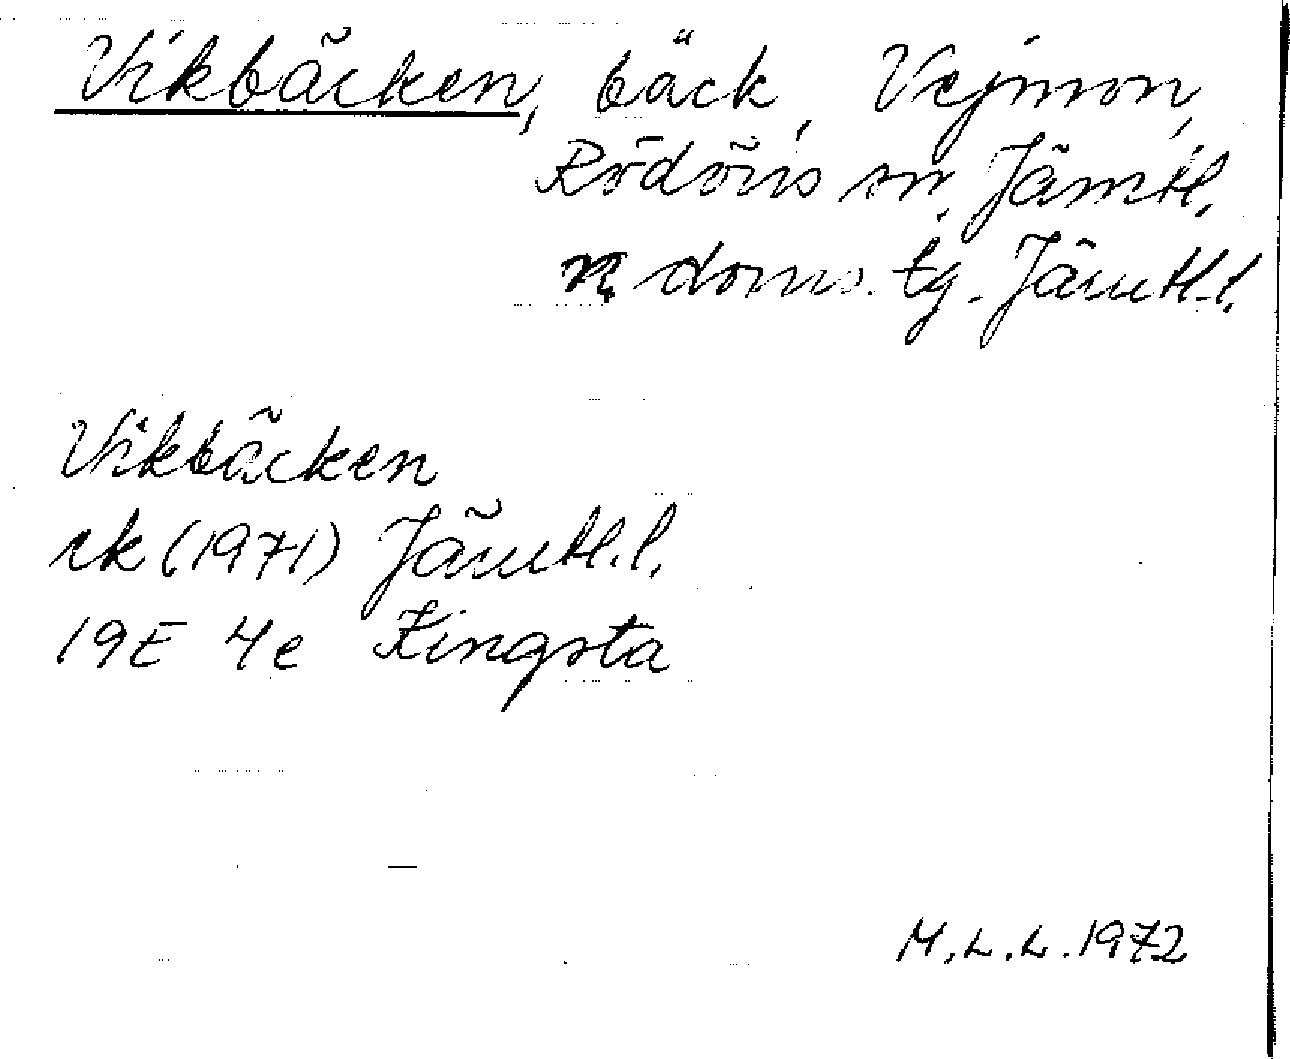 Vikbäcken, bäck, Vejmon,
Rödöns sn, Jämtl.
n doms. tg. Jämtl. l.
Vikbäcken
ek (1971) Jämtl. l.
19E 4e Kingsta
M.L.L. 1972